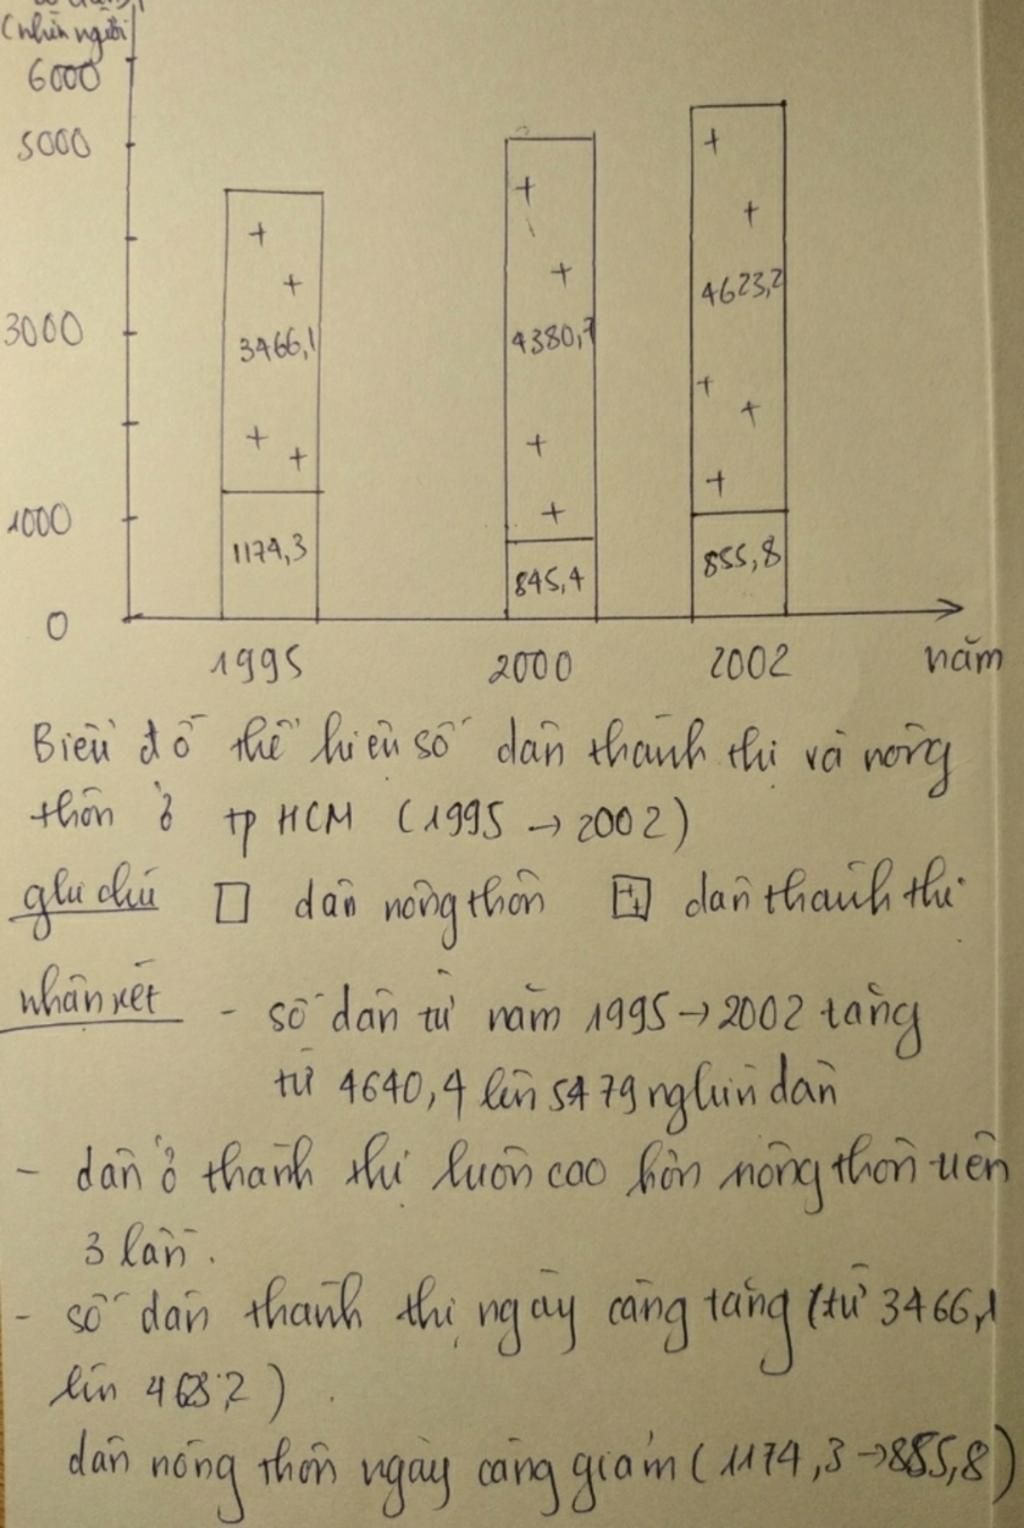 (nghìn người)
6000
5000
3000
1000
0
3466,1
1174,3
4380,7
845,4
4623,2
855,8
1995 2000 2002 năm
Biểu đồ thể hiện số dân thành thị và nông
thôn ở tp HCM (1995 → 2002)
ghi chú dân nông thôn dân thành thị
nhận xét - số dân từ năm 1995 → 2002 tăng
từ 4640,4 lên 5479 nghìn dân
- dân ở thành thị luôn cao hơn nông thôn trên
3 lần.
- số dân thành thị ngày càng tăng (từ 3466,1
lên
dân nông thôn ngày càng giảm (1174,3 → 855,8)